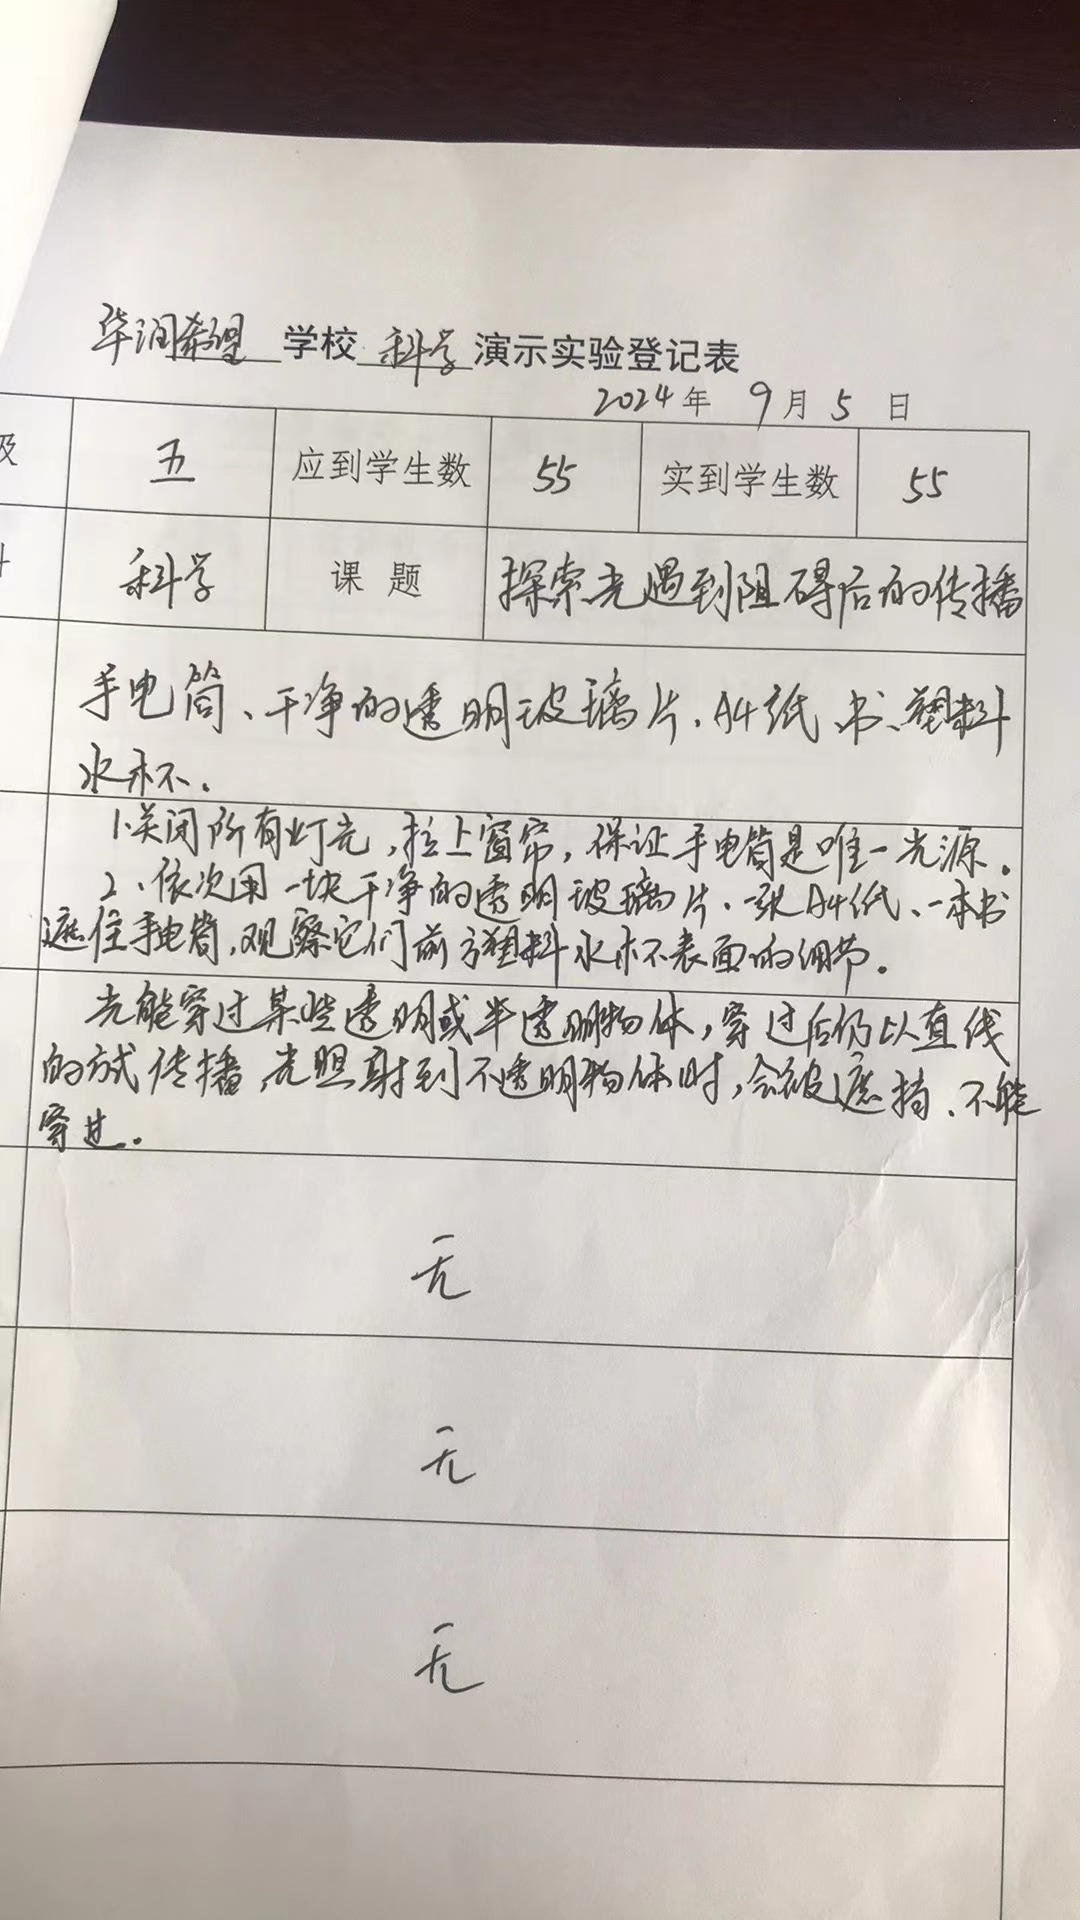 华润希望 学校 科学 演示实验登记表
2024年 9月5日
级 五 应到学生数 55 实到学生数 55
科学 课题 探索光遇到阻碍后的传播
手电筒、干净的透明玻璃片、A4纸、书、塑料
水杯.
1.关闭所有灯光,拉上窗帘,保证手电筒是唯一光源.
2、依次用一块干净的透明玻璃片、一张A4纸、一本书
遮住手电筒,观察它们前方塑料水杯表面的细节.
光能穿过某些透明或半透明物体,穿过后仍以直线
的方式传播,光照射到不透明物体时,会被遮挡、不能
穿过.
无
无
无